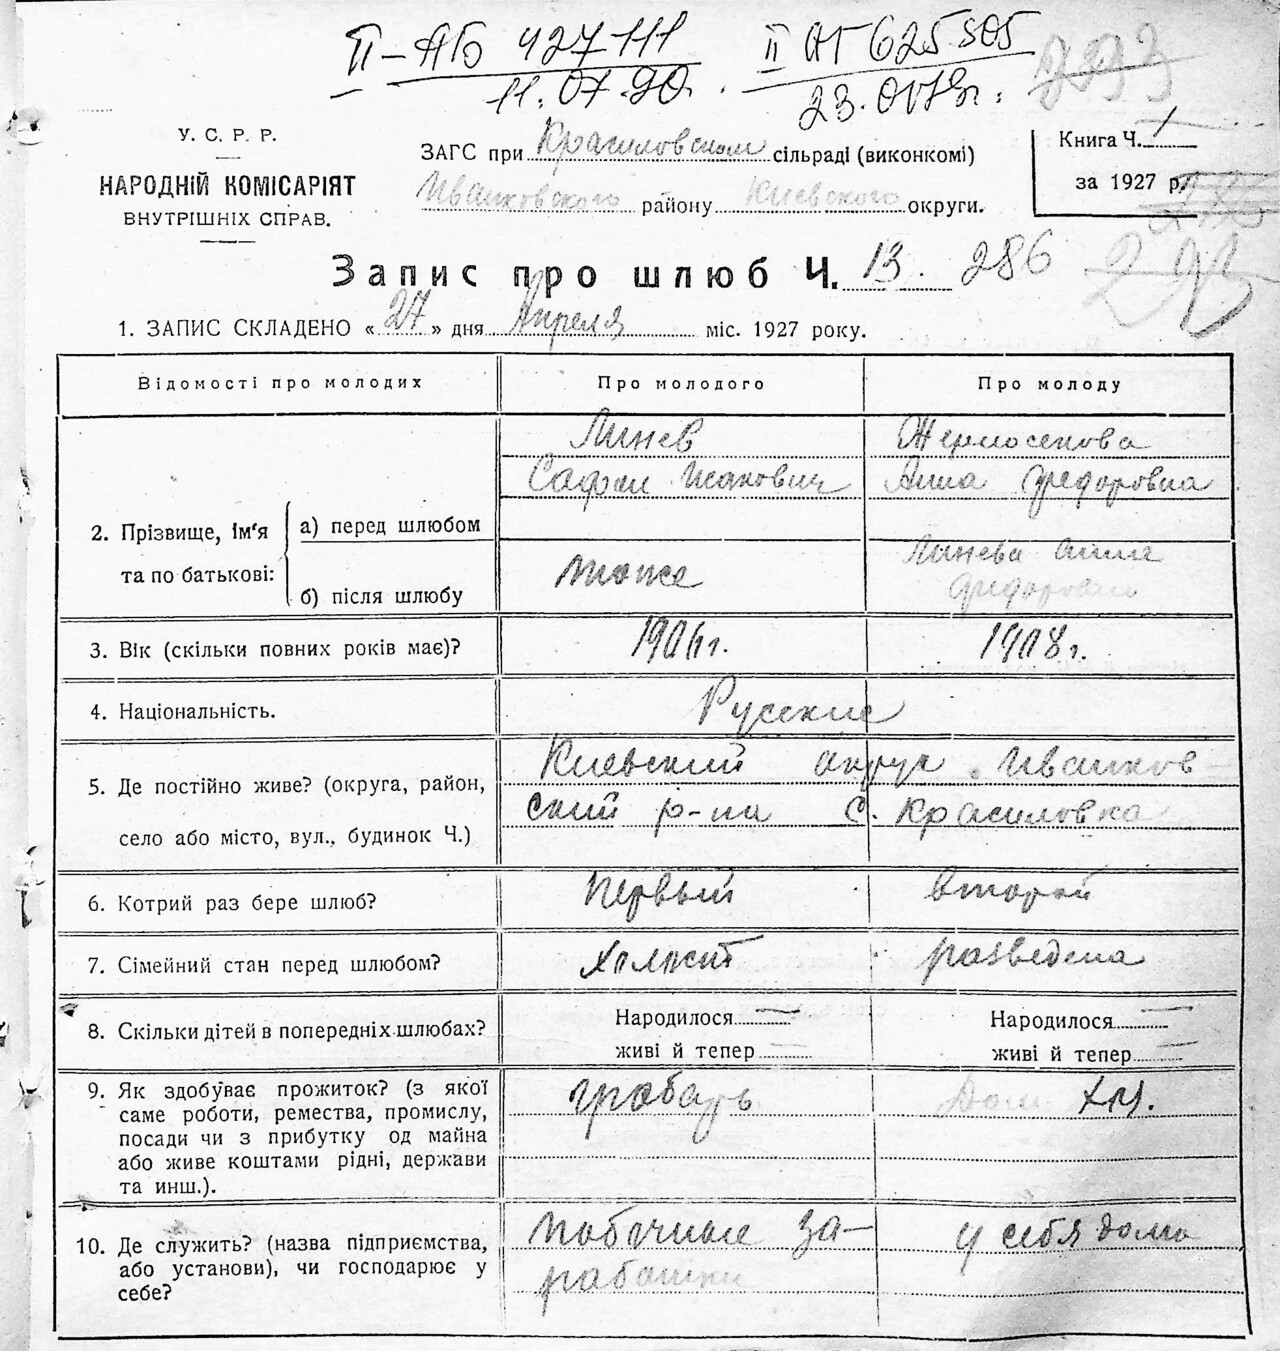 ІІ-АБ 427111 ІІ АГ 625505
11.07.90. 23.01.79г.
293
У. С. Р. Р.
НАРОДНІЙ КОМІСАРІЯТ
ВНУТРІШНІХ СПРАВ.
ЗАГС при Красиловском сільраді (виконкомі)
Иванковского району Киевского округи.
Книга Ч. 1
за 1927 р.
Запис про шлюб Ч. 13. 286
1. ЗАПИС СКЛАДЕНО « 27 » дня Апреля міс. 1927 року.
Відомості про молодих Про молодого Про молоду
Линев
Исакович Анна Федоровна
2. Прізвище, ім'я та по батькові:
а) перед шлюбом
б) після шлюбу
тоже Линева Анна Федоровна
3. Вік (скільки повних років має)? 1906г. 1908г.
4. Національність. Русские
5. Де постійно живе? (округа, район, Киевский округ Иванков-
село або місто, вул., будинок Ч.) ский р-на С. Красиловка
6. Котрий раз бере шлюб? первый второй
7. Сімейний стан перед шлюбом? холост разведена
8. Скільки дітей в попередніх шлюбах? Народилося — Народилося —
живі й тепер — живі й тепер —
9. Як здобуває прожиток? (з якої грабарь Дом. хоз.
саме роботи, ремества, промислу,
посади чи з прибутку од майна
або живе коштами рідні, держави
та инш.).
10. Де служить? (назва підприємства, побочные за- у себя дома
або установи), чи господарює у работки
себе?